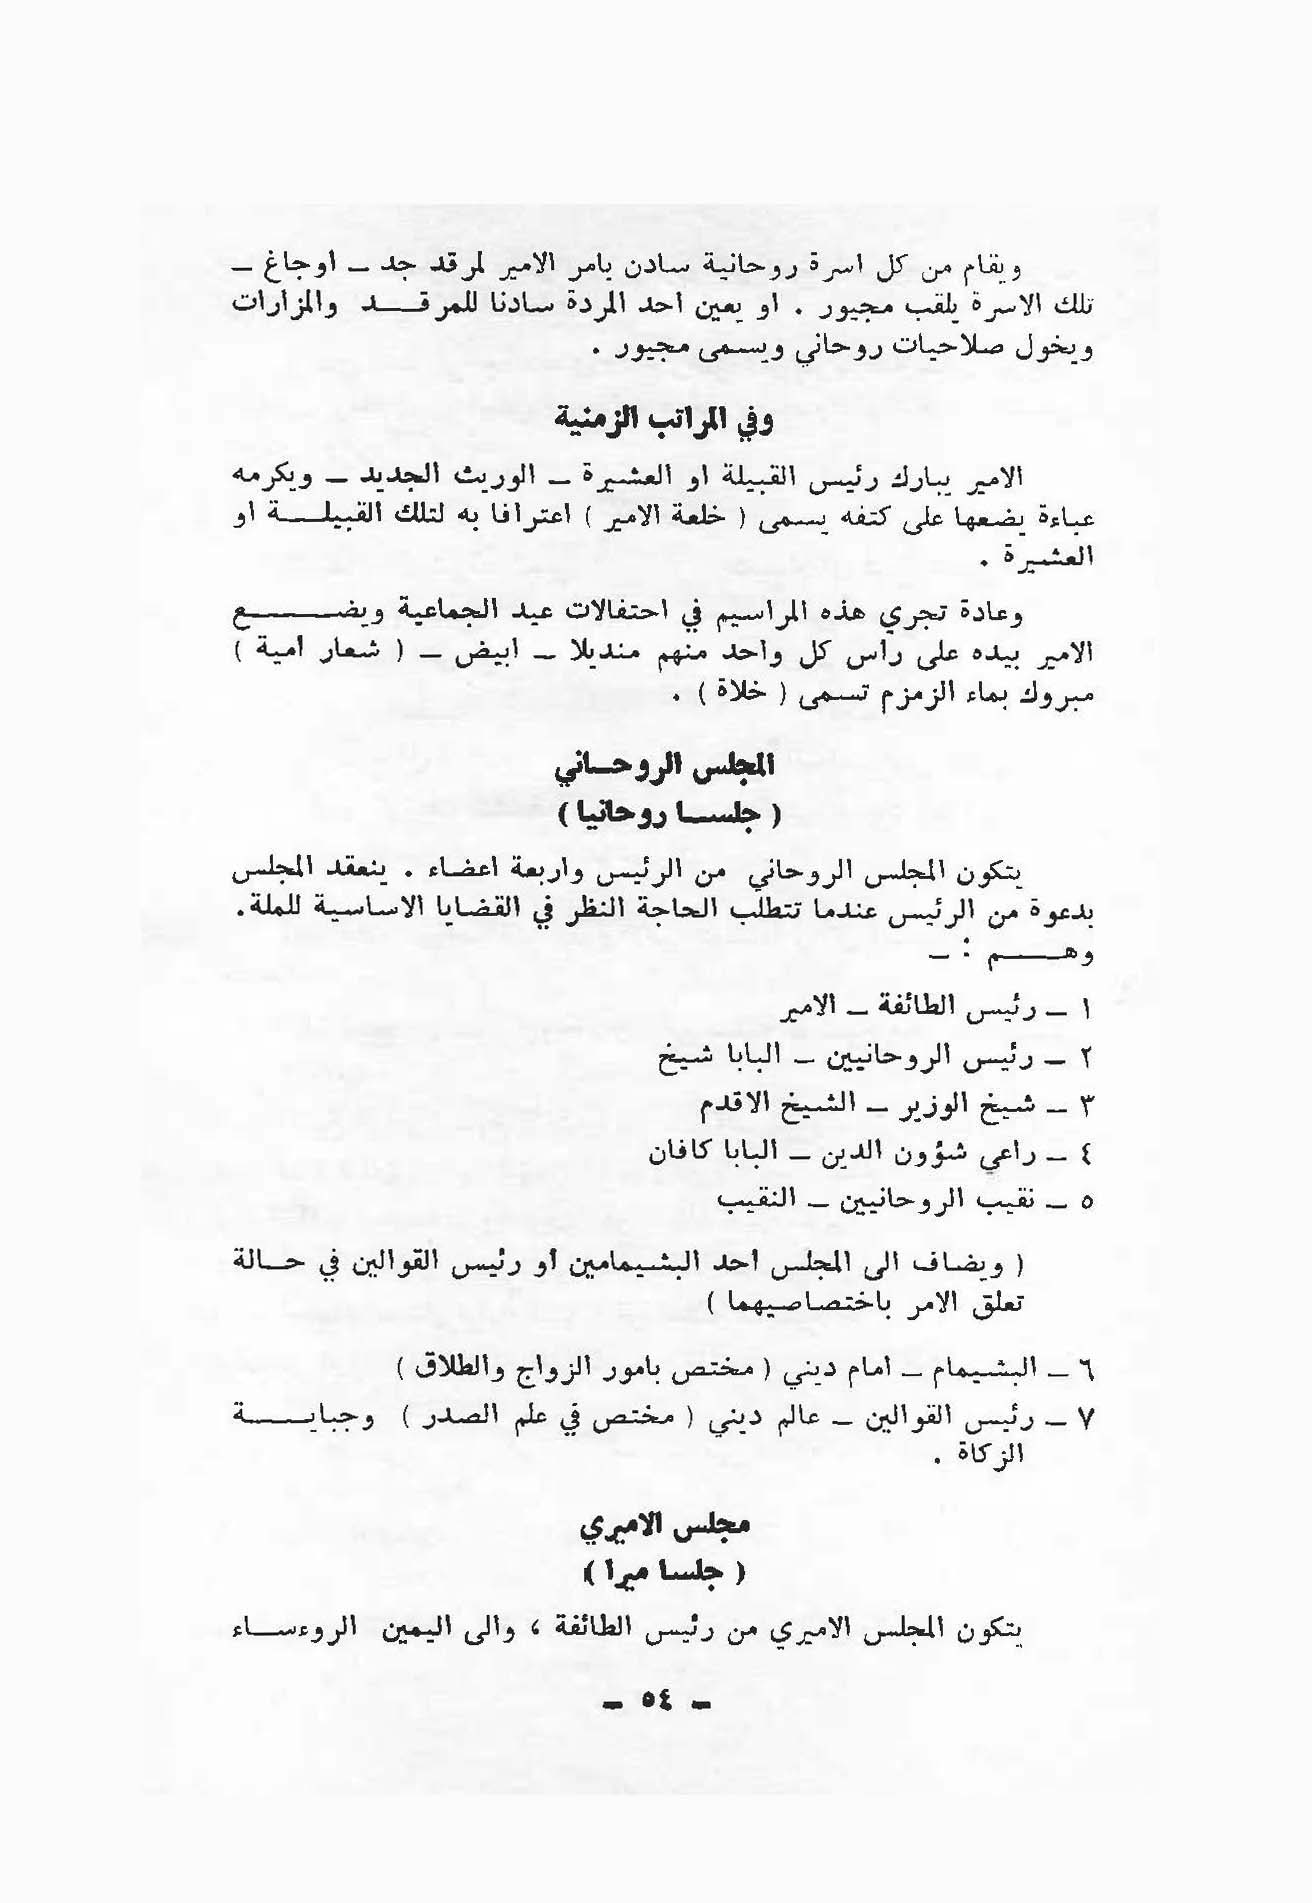 ويقام من كل اسرة روحانية سادن بامر الامير لمرقد جد ــ اوجاغ ــ
تلك الاسرة يلقب مجيور . او يعين احد المردة سادنا للمرقـــد والمزارات
ويخول صلاحيات روحاني ويسمى مجيور .
وفي المراتب الزمنية
الامير يبارك رئيس القبيلة او العشيرة ــ الوريث الجديد ــ ويكرمه
عباءة يضعها على كتفه يسمى ( خلعة الامير ) اعترافا به لتلك القبيلـــة او
العشيرة .
وعادة تجري هذه المراسيم في احتفالات عيد الجماعية ويضـــــع
الامير بيده على رأس كل واحد منهم منديلا ــ ابيض ــ ( شعار امية )
مبروك بماء الزمزم تسمى ( خلاة ) .
المجلس الروحــاني
( جلســا روحانيا )
يتكون المجلس الروحاني من الرئيس واربعة اعضاء . ينعقد المجلس
بدعوة من الرئيس عندما تتطلب الحاجة النظر في القضايا الاساسية للملة.
وهـــم : ــ
١ ــ رئيس الطائفة ــ الامير
٢ ــ رئيس الروحانيين ــ البابا شيخ
٣ ــ شيخ الوزير ــ الشيخ الاقدم
٤ ــ راعي شؤون الدين ــ البابا كافان
٥ ــ نقيب الروحانيين ــ النقيب
( ويضاف الى المجلس أحد البشيمامين أو رئيس القوالين في حــالة
تعلق الامر باختصاصيهما )
٦ ــ البشيمام ــ امام ديني ( مختص بامور الزواج والطلاق )
٧ ــ رئيس القوالين ــ عالم ديني ( مختص في علم الصدر ) وجبايـــة
الزكاة .
مجلس الاميري
( جلسا ميرا )
يتكون المجلس الاميري من رئيس الطائفة ، والى اليمين الروءســاء
ــ ٥٤ ــ